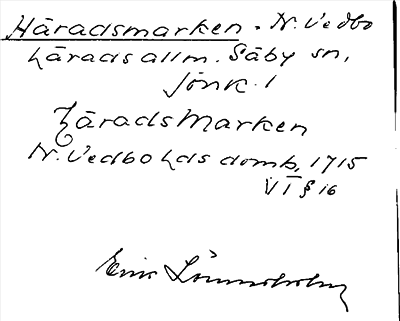 Häradsmarken. N. Vedbo
härads allm. Säby sn,
Jönk. l
HäradsMarken
N. Vedbo hds domb, 1715
VI § 16
Eric Lönnholm